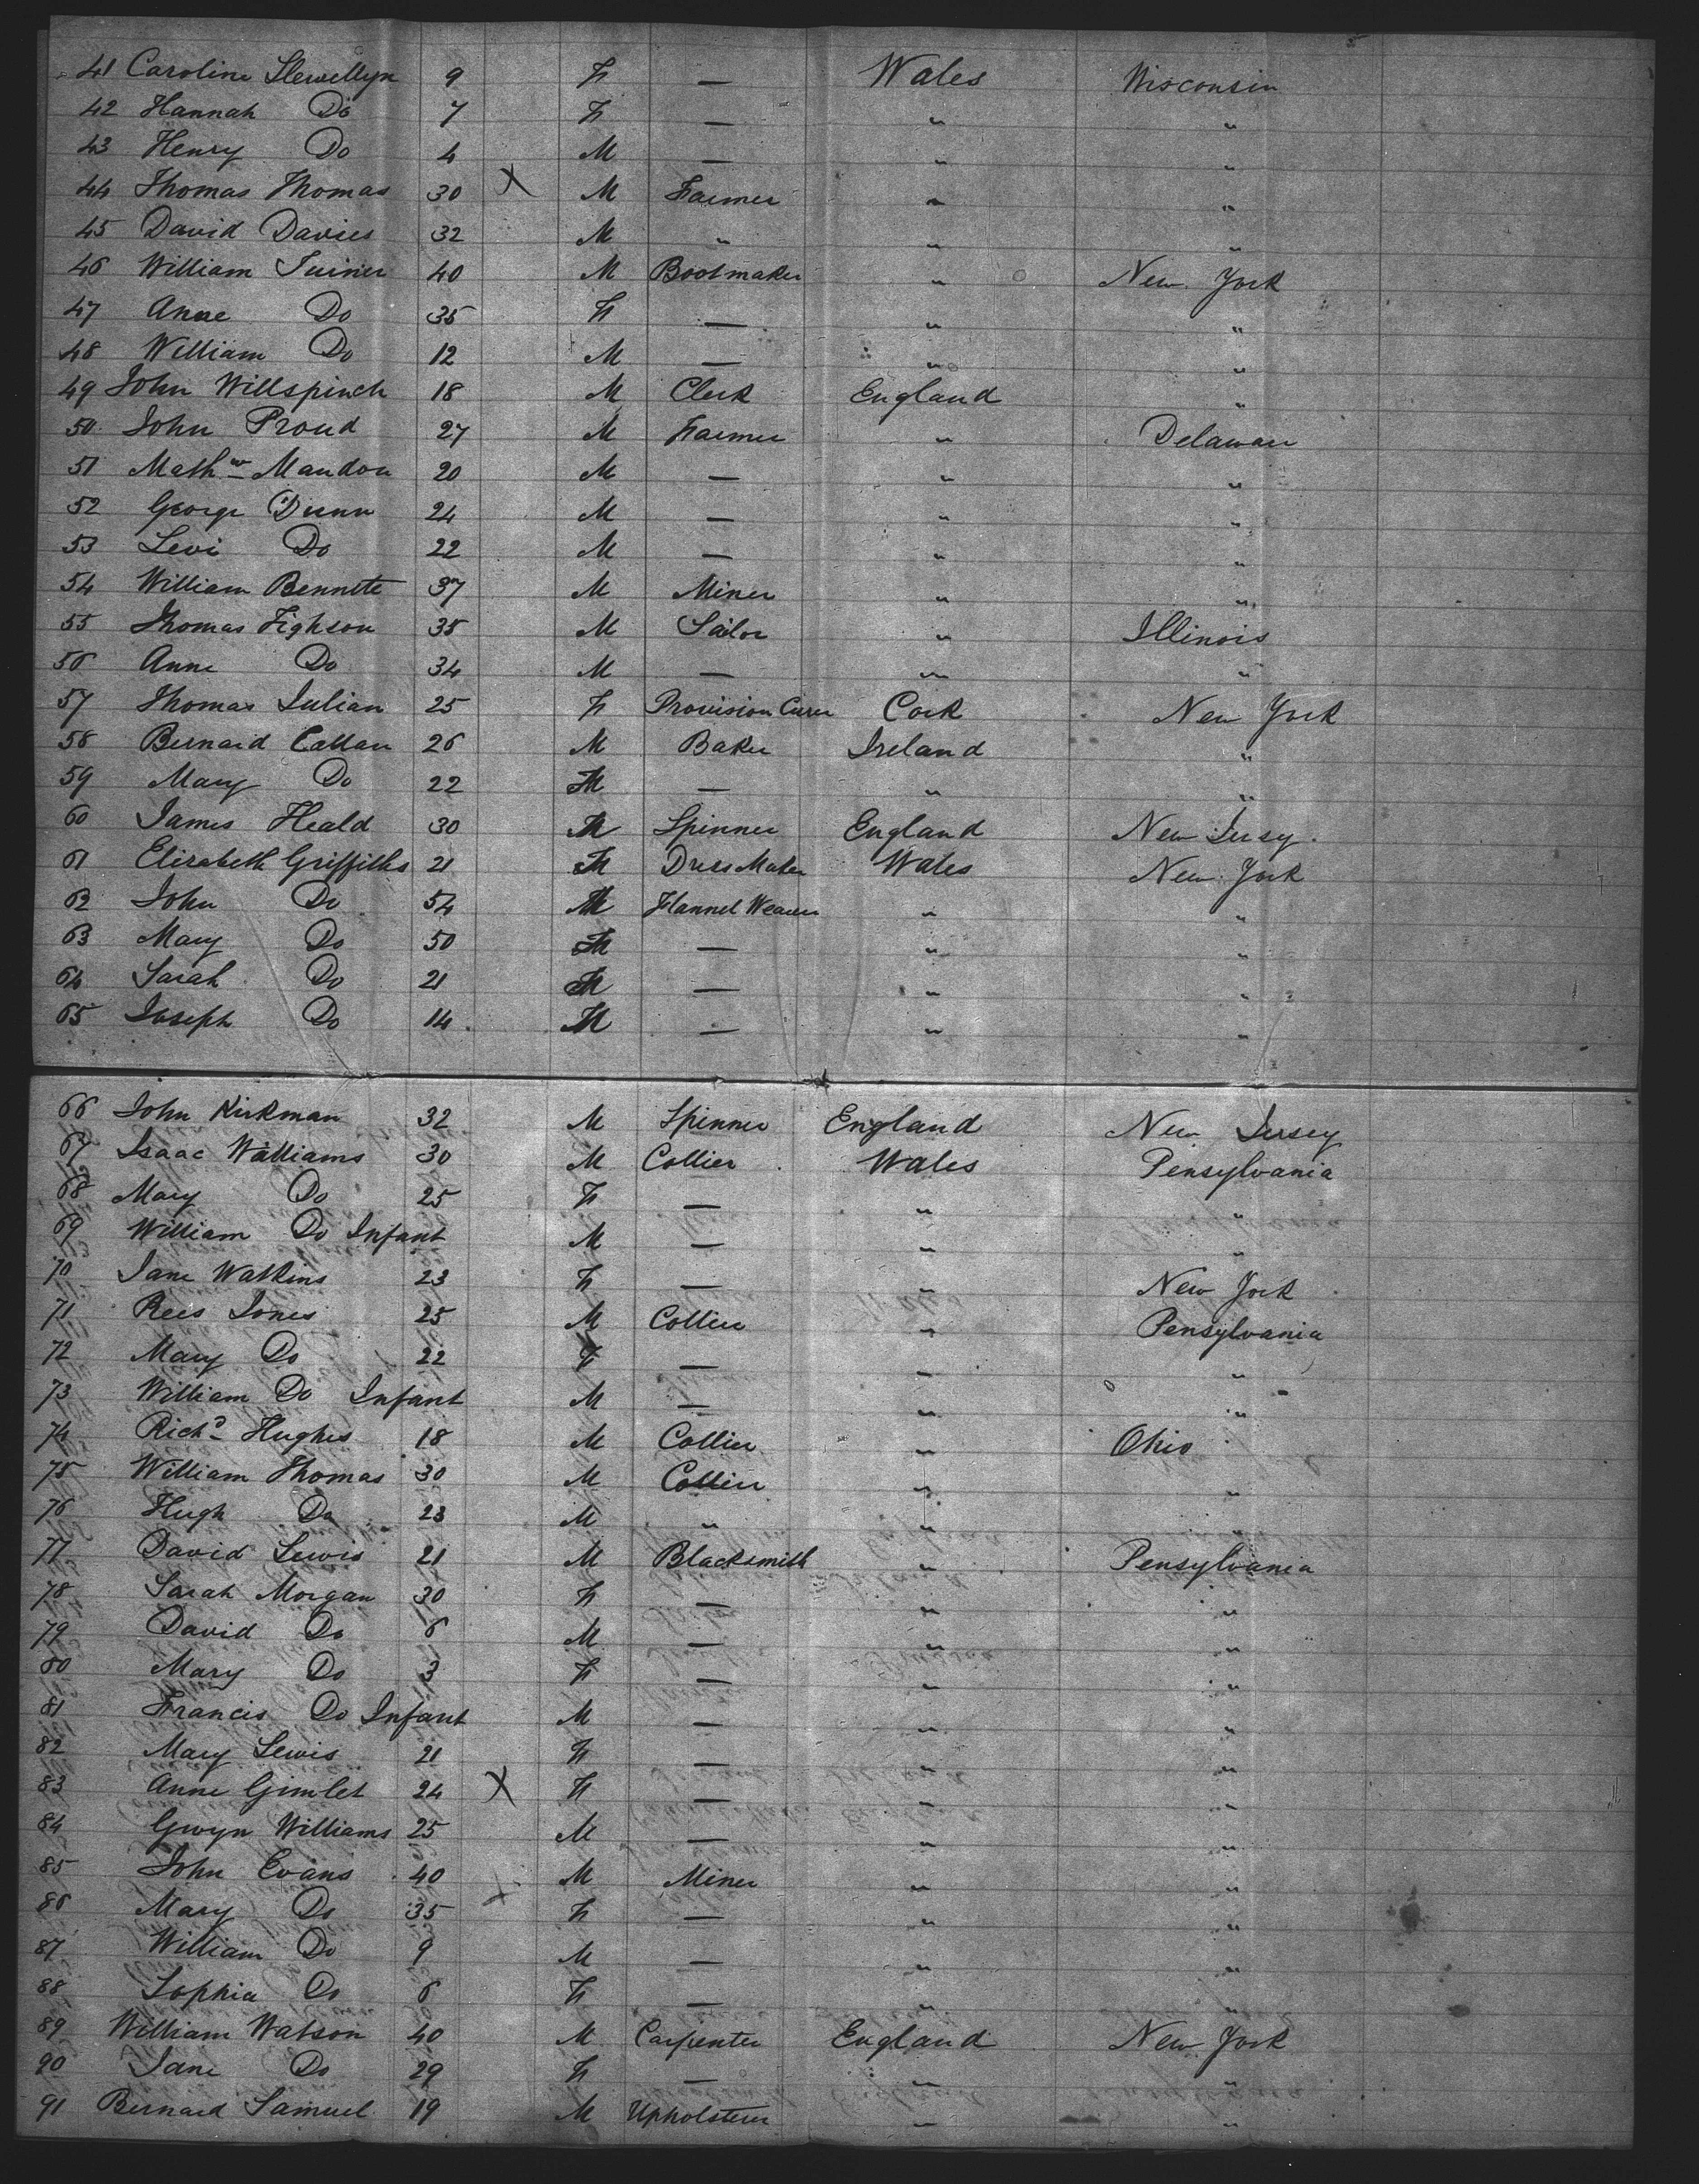 41 Caroline Llewellyn 9 F — Wales Wisconsin
42 Hannah Do 7 F — " "
43 Henry Do 4 M — " "
44 Thomas Thomas 30 X M Farmer " "
45 David Davies 32 M " " "
46 William 40 M Bootmaker " New York
47 Anne Do 35 F — " "
48 William Do 12 M — " "
49 John Willspinch 18 M Clerk England "
50 John Proud 27 M Farmer " Delaware
51 Mathw Mandon 20 M — " "
52 George Dunn 24 M — " "
53 Levi Do 22 M — " "
54 William Bennete 37 M Miner " "
55 Thomas Fighson 35 M Sailor " Illinois
56 Anne Do 34 M — " "
57 Thomas Julian 25 F Provision Curer Cork New York
58 Bernard Callan 26 M Baker Ireland "
59 Mary Do 22 — " "
60 James Heald 30 M Spinner England New Jersey.
61 Elizabeth Griffiths 21 Dress Maker Wales New York
62 John Do 54 M Flannel Weaver " "
63 Mary Do 50 — " "
64 Sarah Do 21 — " "
65 Joseph Do 14 M — " "
66 John Kirkman 32 M Spinner England New Jersey
67 Isaac Williams 30 M Collier Wales Pensylvania
68 Mary Do 25 F — " "
69 William Do Infant M — " "
70 Jane Watkins 23 F — " New York
71 Rees Jones 25 M Collier " Pensylvania
72 Mary Do 22 F — " "
73 William Do Infant M — " "
74 Richd Hughes 18 M Collier " Ohio
75 William Thomas 30 M Collier " "
76 Hugh Do 23 M " " "
77 David Lewis 21 M Blacksmith " Pensylvania
78 Sarah Morgan 30 F — " "
79 David Do 6 M — " "
80 Mary Do 3 F — " "
81 Francis Do Infant M — " "
82 Mary Lewis 21 F — " "
83 Anne Gimlet 24 X F — " "
84 Gwyn Williams 25 M — " "
85 John Evans 40 M Miner " "
86 Mary Do 35 F — " "
87 William Do 9 M — " "
88 Sophia Do 6 F — " "
89 William Watson 40 M Carpenter England New York
90 Jane Do 29 F — " "
91 Bernard Samuel 19 M Upholsterer " "